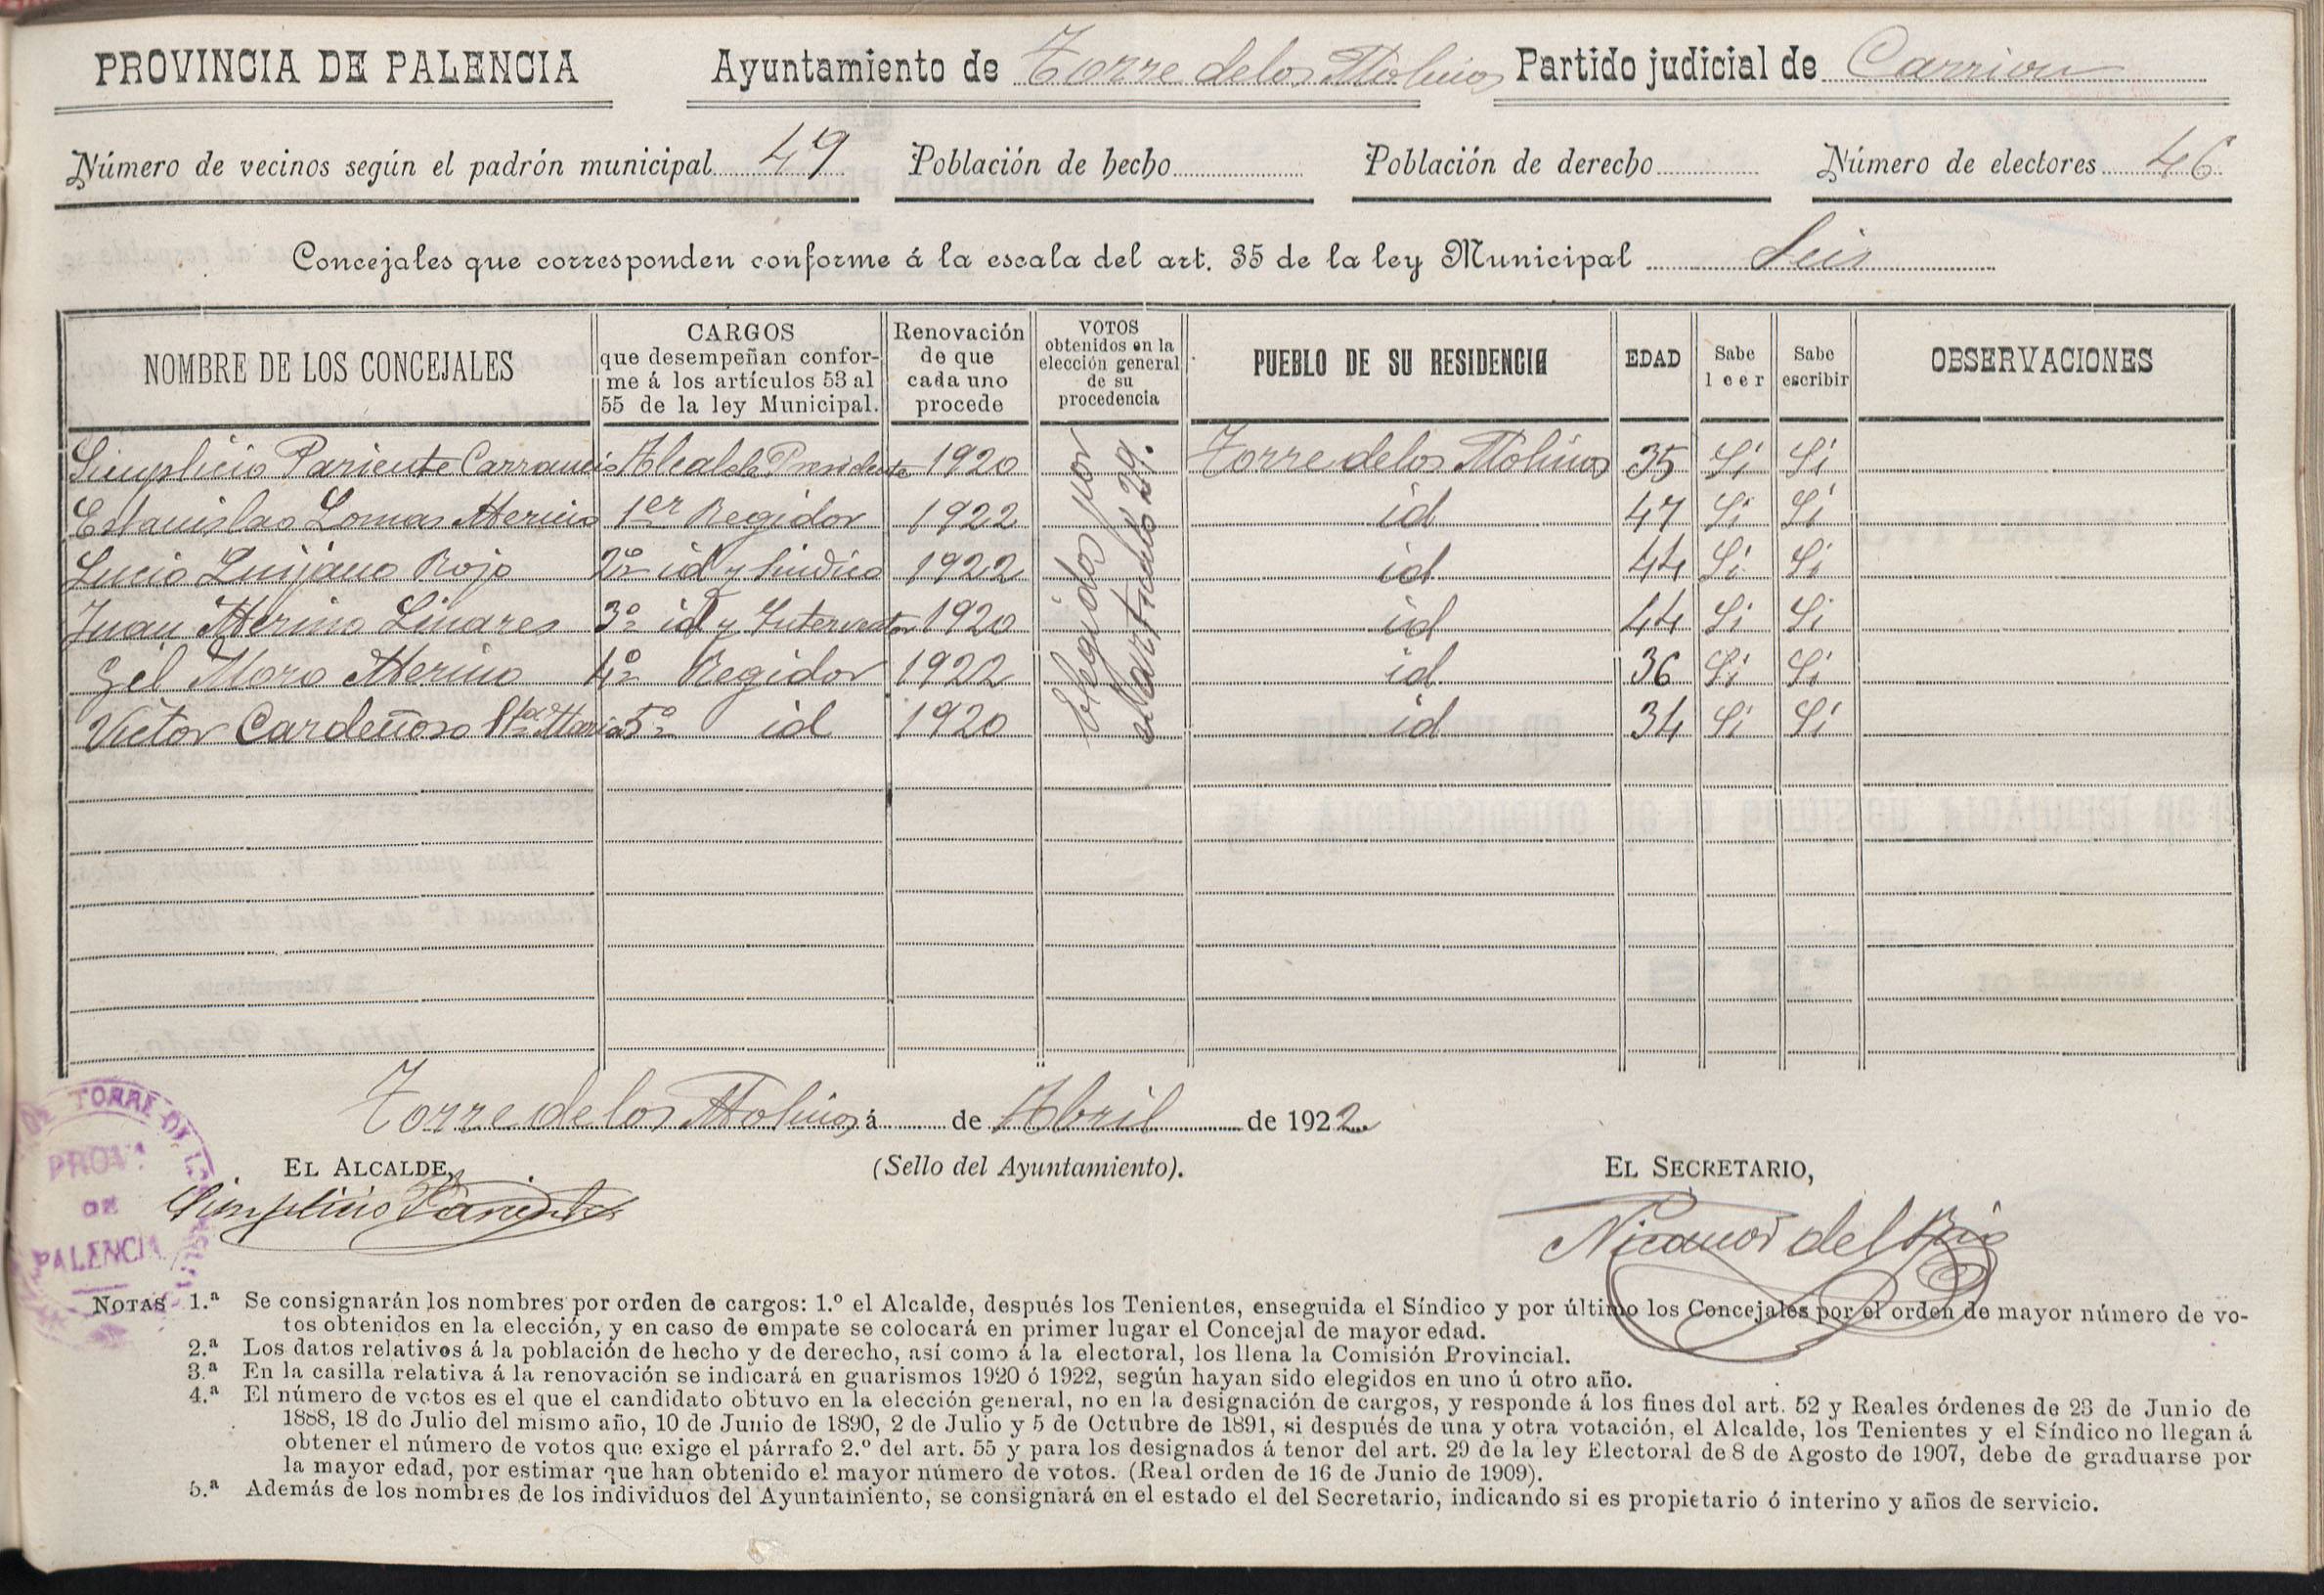 PROVINCIA DE PALENCIA Ayuntamiento de Torre de los Molinos Partido judicial de Carrion
Número de vecinos según el padrón municipal 49 Población de hecho Población de derecho Número de electores 46
Concejales que corresponden conforme á la escala del art. 35 de la ley Municipal Seis
NOMBRE DE LOS CONCEJALES CARGOS que desempeñan confor- me á los artículos 53 al 55 de la ley Municipal. Renovación de que cada uno procede VOTOS obtenidos en la elección general de su procedencia PUEBLO DE SU RESIDENCIA EDAD Sabe leer Sabe escribir OBSERVACIONES
Simplicio Pariente Carrancio Alcalde Presidente 1920 Torre de los Molinos 35 Si Si
Estanislao Lomas Merino 1er Regidor 1922 id 47 Si Si
Lucio Quijano Rojo 2º id y Sindico 1922 id 44 Si Si
Juan Merino Linares 3º id y Interventor 1920 id 44 Si Si
Gil Moro Merino 4º Regidor 1922 id 36 Si Si
Victor Cardeñoso Sta Maria 5º id 1920 id 34 Si Si
Elegidos por
el articulo 29.
Torre de los Molinos á de Abril de 1922
EL ALCALDE, (Sello del Ayuntamiento). EL SECRETARIO,
Simplicio Pariente Nicanor del Rio
TORRE DE LOS
PROVª
DE
PALENCIA
NOTAS 1.ª Se consignarán los nombres por orden de cargos: 1.º el Alcalde, después los Tenientes, enseguida el Síndico y por último los Concejales por el orden de mayor número de vo-
tos obtenidos en la elección, y en caso de empate se colocará en primer lugar el Concejal de mayor edad.
2.ª Los datos relativos á la población de hecho y de derecho, así como á la electoral, los llena la Comisión Provincial.
3.ª En la casilla relativa á la renovación se indicará en guarismos 1920 ó 1922, según hayan sido elegidos en uno ú otro año.
4.ª El número de votos es el que el candidato obtuvo en la elección general, no en la designación de cargos, y responde á los fines del art. 52 y Reales órdenes de 23 de Junio de
1888, 18 de Julio del mismo año, 10 de Junio de 1890, 2 de Julio y 5 de Octubre de 1891, si después de una y otra votación, el Alcalde, los Tenientes y el Síndico no llegan á
obtener el número de votos que exige el párrafo 2.º del art. 55 y para los designados á tenor del art. 29 de la ley Electoral de 8 de Agosto de 1907, debe de graduarse por
la mayor edad, por estimar que han obtenido el mayor número de votos. (Real orden de 16 de Junio de 1909).
5.ª Además de los nombres de los individuos del Ayuntamiento, se consignará en el estado el del Secretario, indicando si es propietario ó interino y años de servicio.